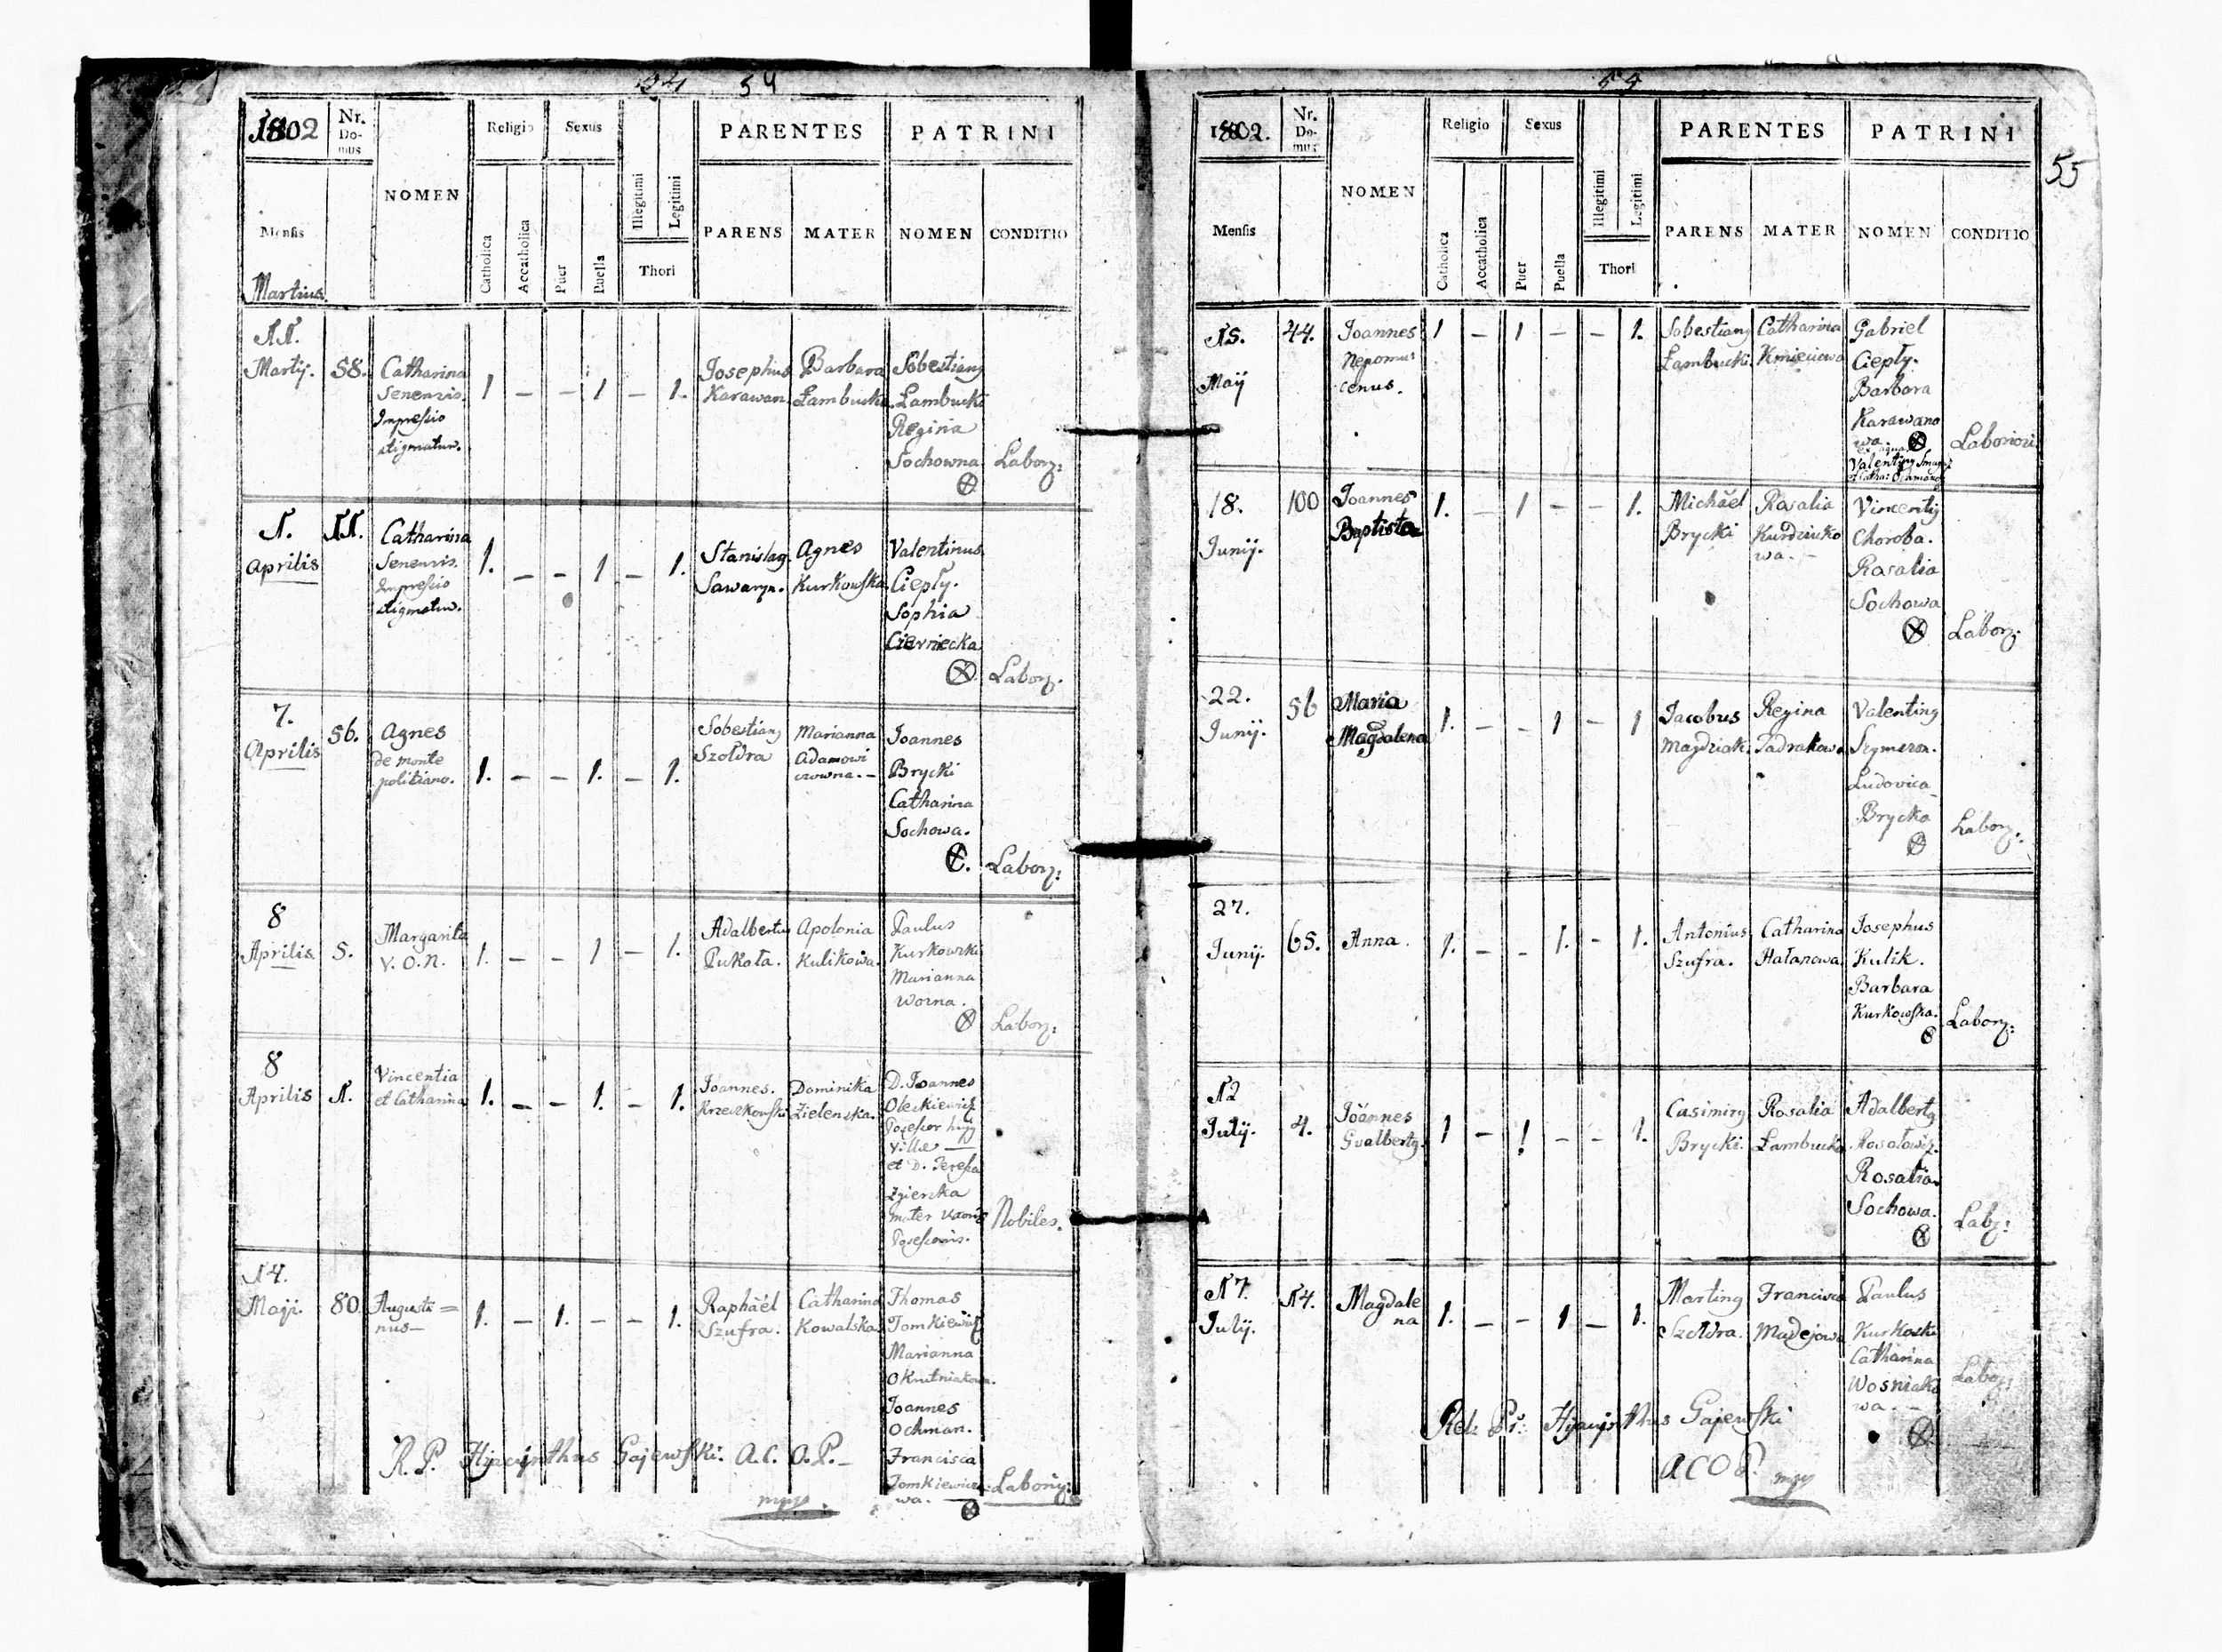 54 54
1802 Nr. Domus NOMEN Religio Sexus Illegitimi Legitimi PARENTES PATRINI
Mensis Catholica Accatholica Puer Puella Thori PARENS MATER NOMEN CONDITIO
Martius.
11. Martij. 58. Catharina Senensis. Impressio stigmatum. 1 – – 1 – 1. Josephus Karawan. Barbara Łambucka. Sobestiany Łambucki Regina Sochowna. Laborz:
1. Aprilis 11. Catharina Senensis. Impressio stigmatum. 1. – – 1 – 1. Stanislaq. Sawaryn. Agnes Kurkowska Valentinus Ciepły. Sophia Czerniecka Laborz.
7. Aprilis 56. Agnes de monte politiano. 1. – – 1. – 1. Sobestiany Szołdra Marianna Adamowi czowna. – Joannes Brycki Catharina Sochowa. Laborz:
8 Aprilis. 5. Margarita V. O. N. 1. – – 1 – 1. Adalbertus Pukoła. Apolonia Kulikowa. Paulus Kurkowski Marianna Worna. Laborz:
8 Aprilis 1. Vincentia et Catharina 1. – – 1. – 1. Joannes. Krzeczkowski Dominika Zielenska. D. Joannes Oleckiewicz Possessor hujy Villæ — et D. Teressa Zgierska mater uxoris Possessoris. Nobiles.
14. Maji. 80. Augusti= nus— 1. – 1. – – 1. Raphäel Szufra. Catharina Kowalska. Thomas Tomkiewicz Marianna Okrutniakowa. Joannes Ochman. Francisca Tomkiewiczo wa. Labory:
R. P. Hyacynthus Gajewski. A. C. O. P. –
mpp.
54
55
1802. Nr. Domus NOMEN Religio Sexus Illegitimi Legitimi PARENTES PATRINI
Mensis Catholica Accatholica Puer Puella Thori PARENS MATER NOMEN CONDITIO
15. Maij 44. Joannes Nepomu cenus. 1 – 1 – – 1. Sobestiany Łambucki. Catharina Kmieciowa Gabriel Ciepły. Barbara Karawano wa. ex aqua Valentiny Laboriosi
18. Junij. 100 Joannes Baptista 1. – 1 – – 1. Michäel Brycki Rosalia Kurdzielko wa. – Vincenty Choroba. Rosalia Sochowa Laborz.
22. Junij. 56 Maria Magdalena 1. – – 1 – 1 Jacobus Magdziak. Regina Padrakowa Valentiny Szymczon. Ludovica Brycka Laborz.
27. Junij. 65. Anna. 1. – – 1. – 1. Antonius Szufra. Catharina Hałasowa Josephus Kulik. Barbara Kurkowska. Laborz:
12 Julij. 4. Jöannes Gualberty. 1 – 1 – – 1. Casimiry Brycki. Rosalia Łambucka Adalberty Rosołowicz. Rosalia Sochowa. Labz:
17. Julij. 14. Magdale na 1. – – 1 – 1. Martiny Szołdra. Francisca Madejowa Paulus Kurkoski Catharina Wosniako wa. – Laboz:
Rel: Pr: Hyacynthus Gajewski
A C O P. mpp